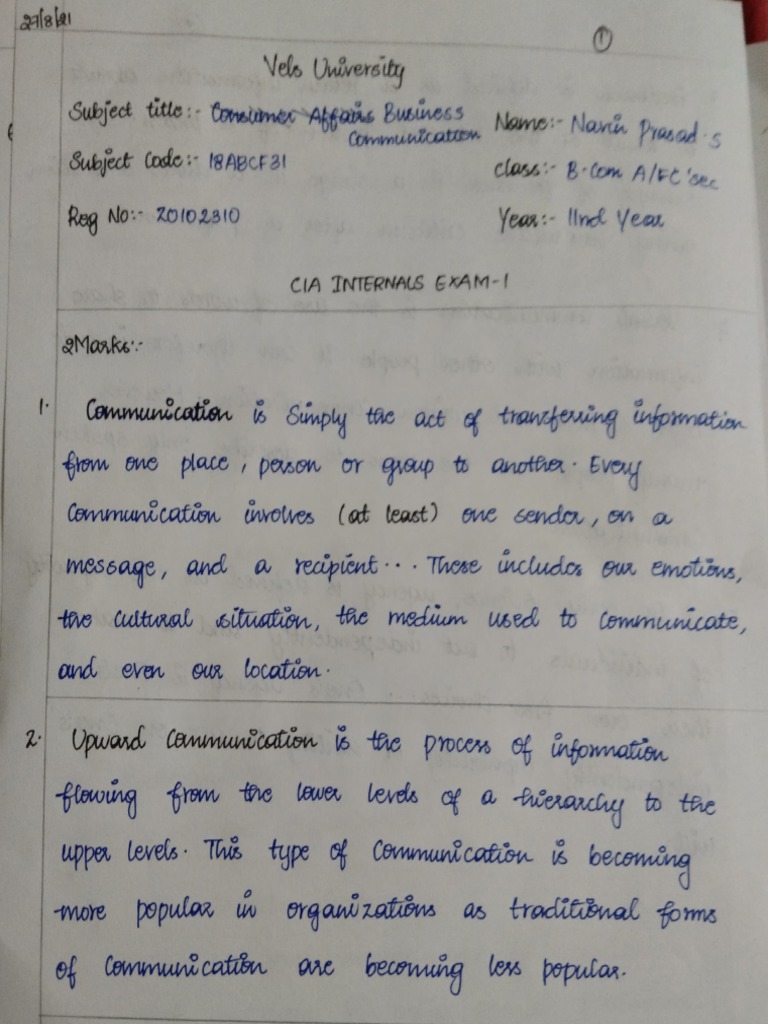 27/8/21
1
Vels University
Subject title:- Consumer Affairs Business
Communication
Name:- Navin Prasad.S
Subject Code:- 18ABCF31
Class:- B.Com A/FC 'sec
Reg No:- 20102310
Year:- IInd Year
CIA INTERNALS EXAM-1
2Marks:-
1. Communication is Simply the act of transferring information
from one place, person or group to another. Every
Communication involves (at least) one sender, on a
message, and a recipient... These includes our emotions,
the cultural situation, the medium used to communicate,
and even our location.
2. Upward Communication is the process of information
flowing from the lower levels of a hierarchy to the
upper levels. This type of Communication is becoming
more popular in organizations as traditional forms
of Communication are becoming less popular.